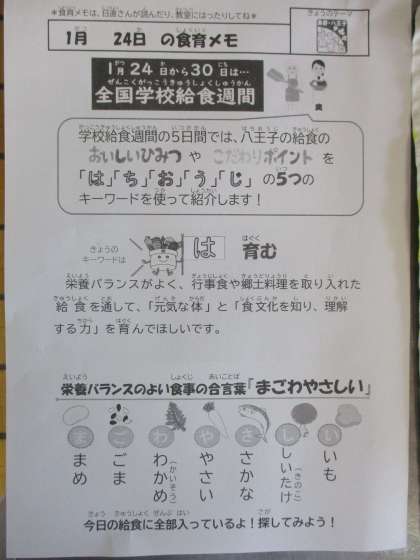 ＊食育メモは、日直さんが読んだり、教室にはったりしてね＊
きょうのテーマ
1月　24日　の食育メモ
1月24日から30日は…
全国学校給食週間
学校給食週間の5日間では、八王子の給食の
おいしいひみつ や こだわりポイント を
「は」「ち」「お」「う」「じ」 の5つの
キーワードを使って紹介します！
きょうの
キーワードは
は 育む
栄養バランスがよく、行事食や郷土料理を取り入れた
給食を通して、「元気な体」と「食文化を知り、理解
する力」を育んでほしいです。
栄養バランスのよい食事の合言葉「まごわやさしい」
ま ご わ や さ し い
まめ
ごま
わかめ（かいそう）
やさい
さかな
しいたけ（きのこ）
いも
今日の給食に全部入っているよ！探してみよう！